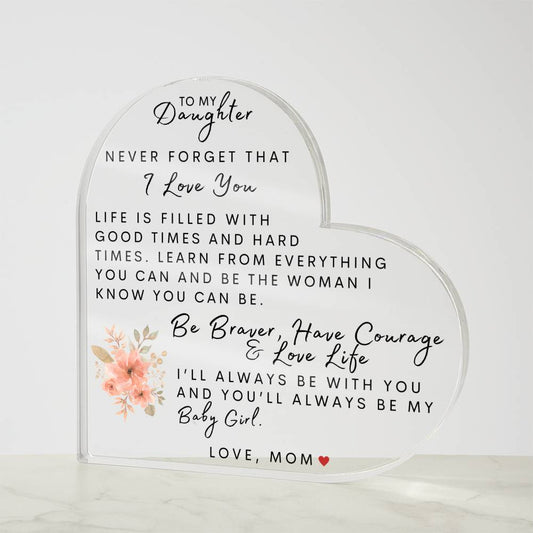 TO MY
Daughter
NEVER FORGET THAT
I Love You
LIFE IS FILLED WITH
GOOD TIMES AND HARD
TIMES. LEARN FROM EVERYTHING
YOU CAN AND BE THE WOMAN I
KNOW YOU CAN BE.
Be Braver, Have Courage
& Love Life
I'LL ALWAYS BE WITH YOU
AND YOU'LL ALWAYS BE MY
Baby Girl.
LOVE, MOM